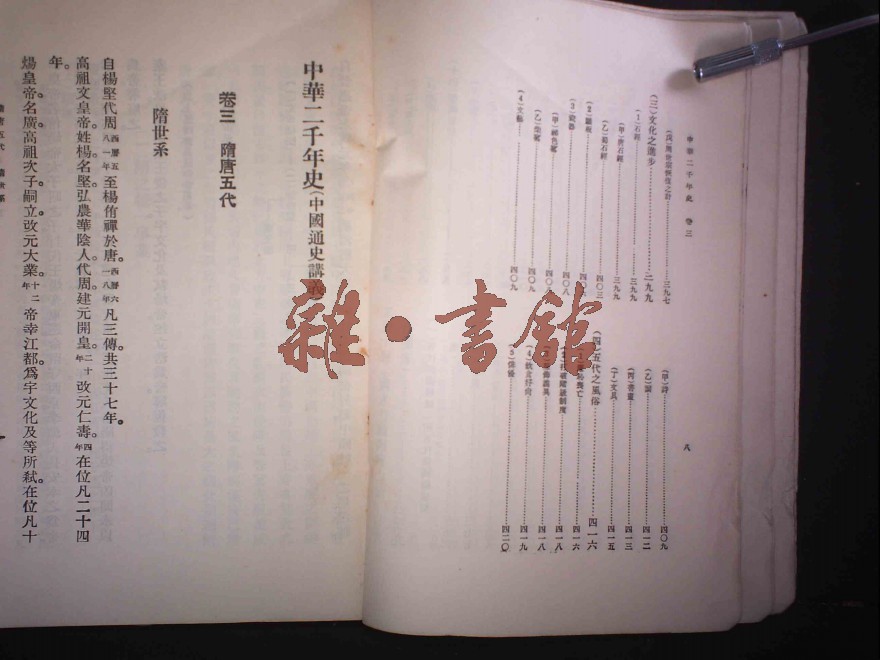 中華二千年史 卷三
八
(戊)周世宗恢復之計……三九七
(三)文化之進步……三九九
(1)石經……三九九
(甲)唐石經……三九九
(乙)蜀石經……四〇三
(2)雕板……四〇
(3)瓷器……四〇八
(甲)祕色窰……四〇八
(乙)柴窰……四〇九
(4)文藝……四〇九
(甲)詩……四〇九
(乙)詞……四一二
(丙)書畫……四一三
(丁)文具……四一五
(四)五代之風俗……四一六
喪亡……四一六
制度……四一八
四一八
(4)飲食好尚……四一九
(5)佛……四二〇
中華二千年史(中國通史講義)
卷三 隋唐五代
隋世系
自楊堅代周。西曆五八一年至楊侑禪於唐。西曆六一八年凡三傳。共三十七年。
高祖文皇帝。姓楊。名堅。弘農華陰人。代周。建元開皇。二十年改元仁壽。四年在位凡二十四
年。
煬皇帝。名廣。高祖次子。嗣立。改元大業。十二年帝幸江都。爲宇文化及等所弒。在位凡十
隋唐五代 隋世系
一
雜·書館